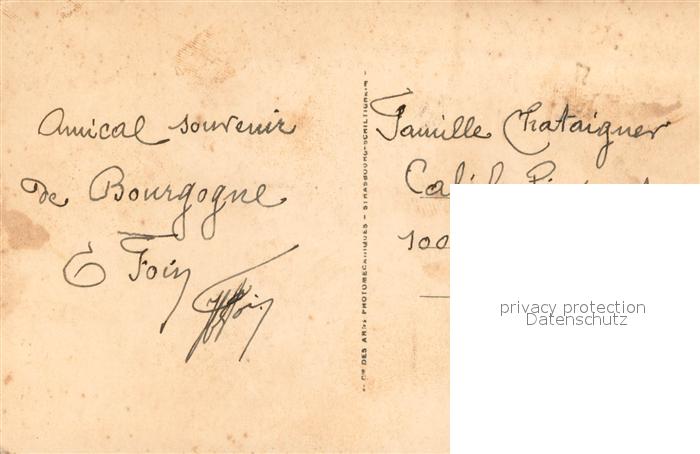 Amical souvenir
de Bourgogne
E Foin
Cie DES ARTS PHOTOMECANIQUES - STRASBOURG-SCHILTIGHEIM -
Famille Chataigner
100
privacy protection
Datenschutz